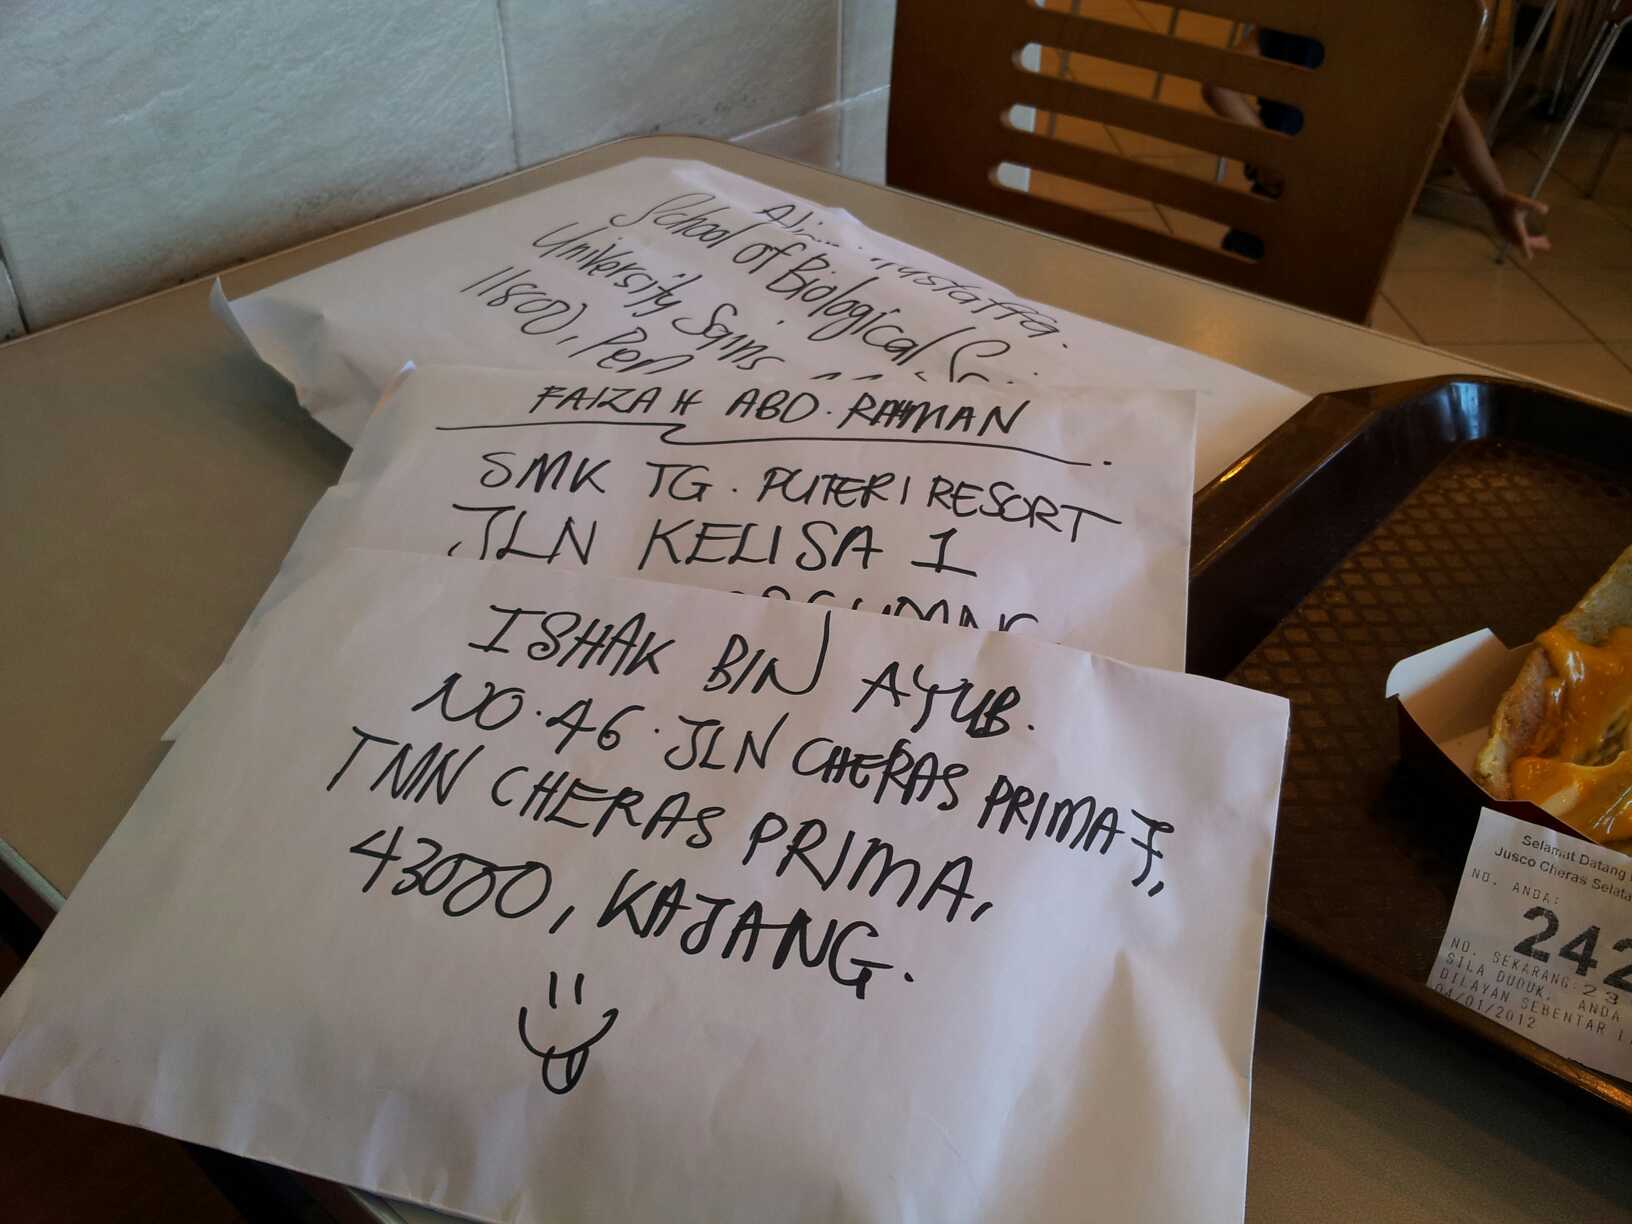 School of Biological
University Sains
11800, Pen
FAIZAH ABD. RAHMAN
SMK TG. PUTERI RESORT
JLN KELISA 1
ISHAK BIN AYUB.
NO. 46. JLN CHERAS PRIMA 7,
TMN CHERAS PRIMA,
43000, KAJANG.
Selamat Datang
Jusco Cheras Selata
NO. ANDA:
242
NO. SEKARANG: 23
SILA DUDUK. ANDA
DILAYAN SEBENTAR
04/01/2012